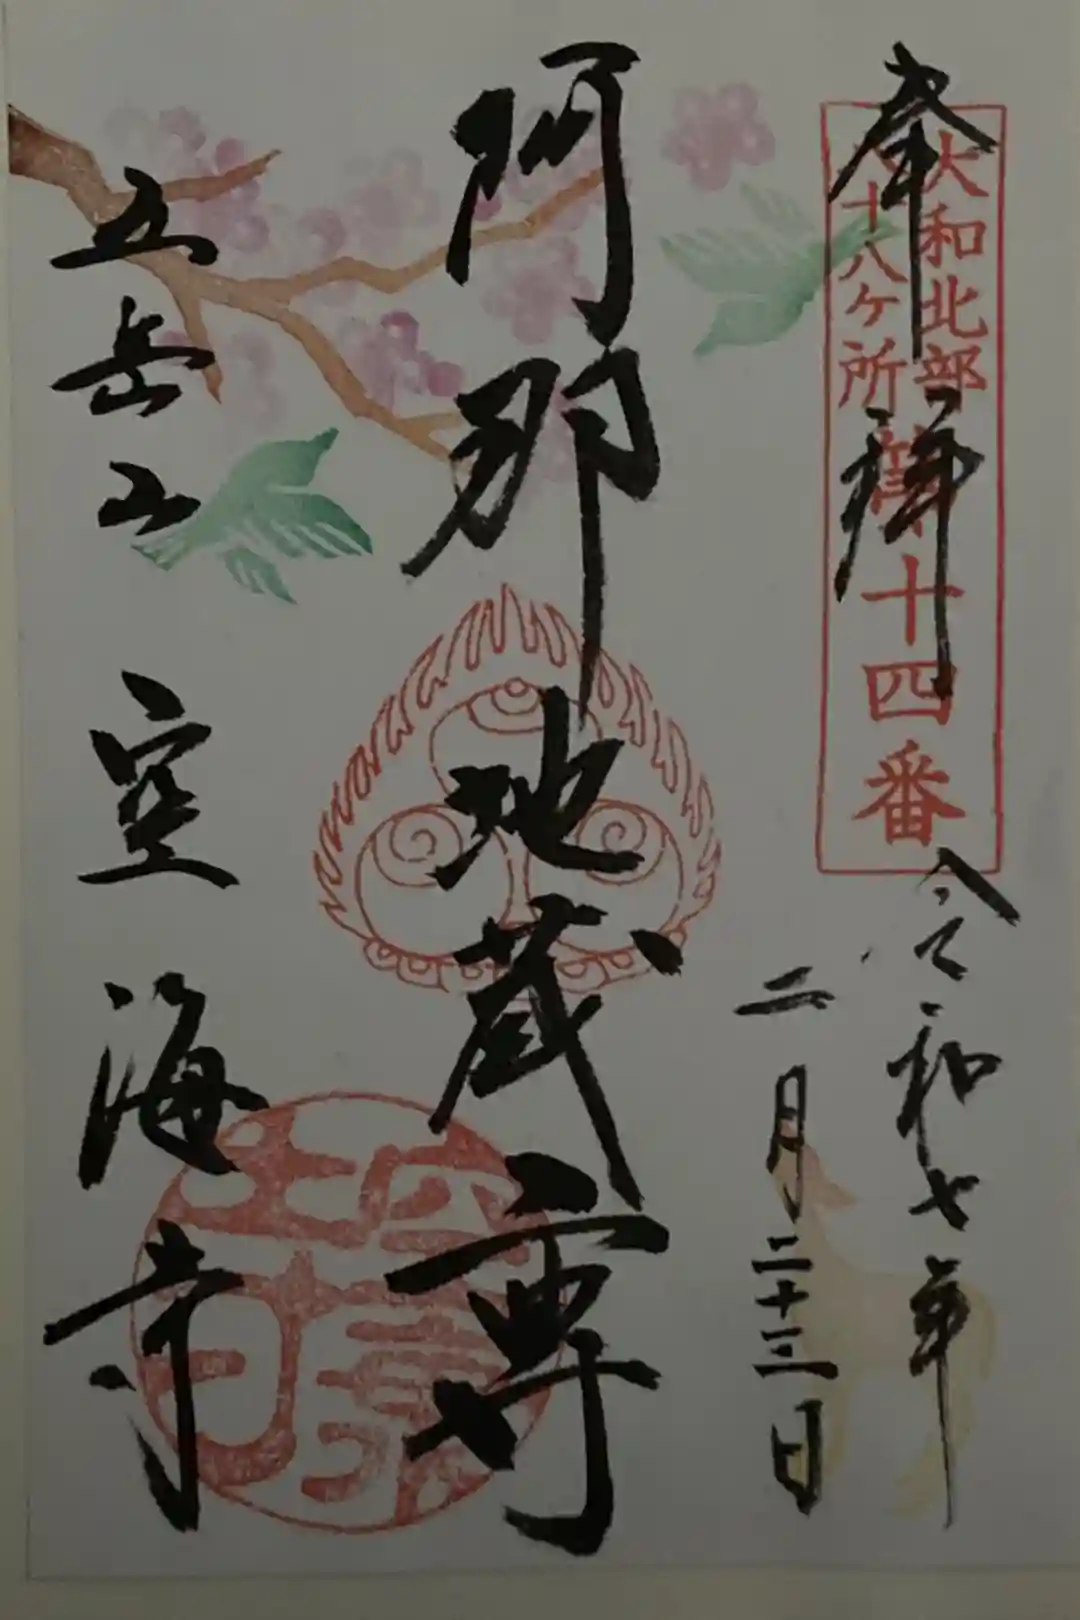 奉拝
大和北部
八十八ヶ所
第十四番
令和七年
二月二十三日
阿那地蔵尊
五岳山
空海寺